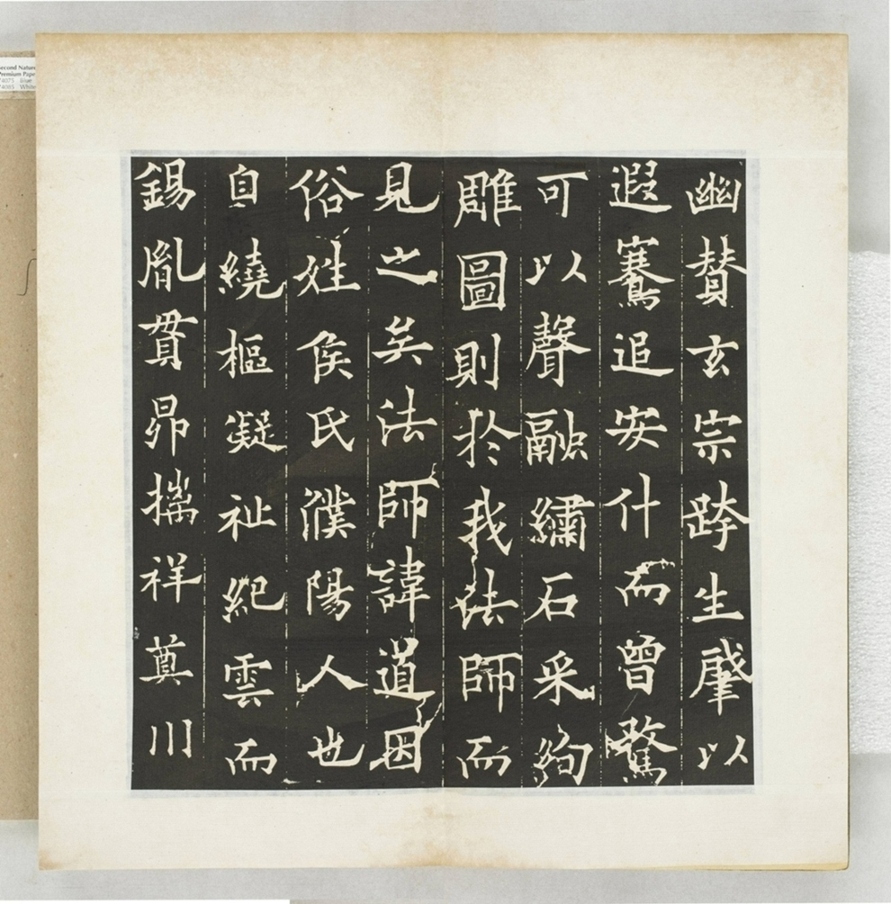 幽贊玄宗跨生肇以
遐騫追安什而曾騖
可以聲融繡石采絢
雕圖則於我法師而
見之矣法師諱道因
俗姓侯氏濮陽人也
自繞樞凝祉紀雲而
錫胤貫昴摛祥奠川
econd Nature
Premium Pape
Blue
White